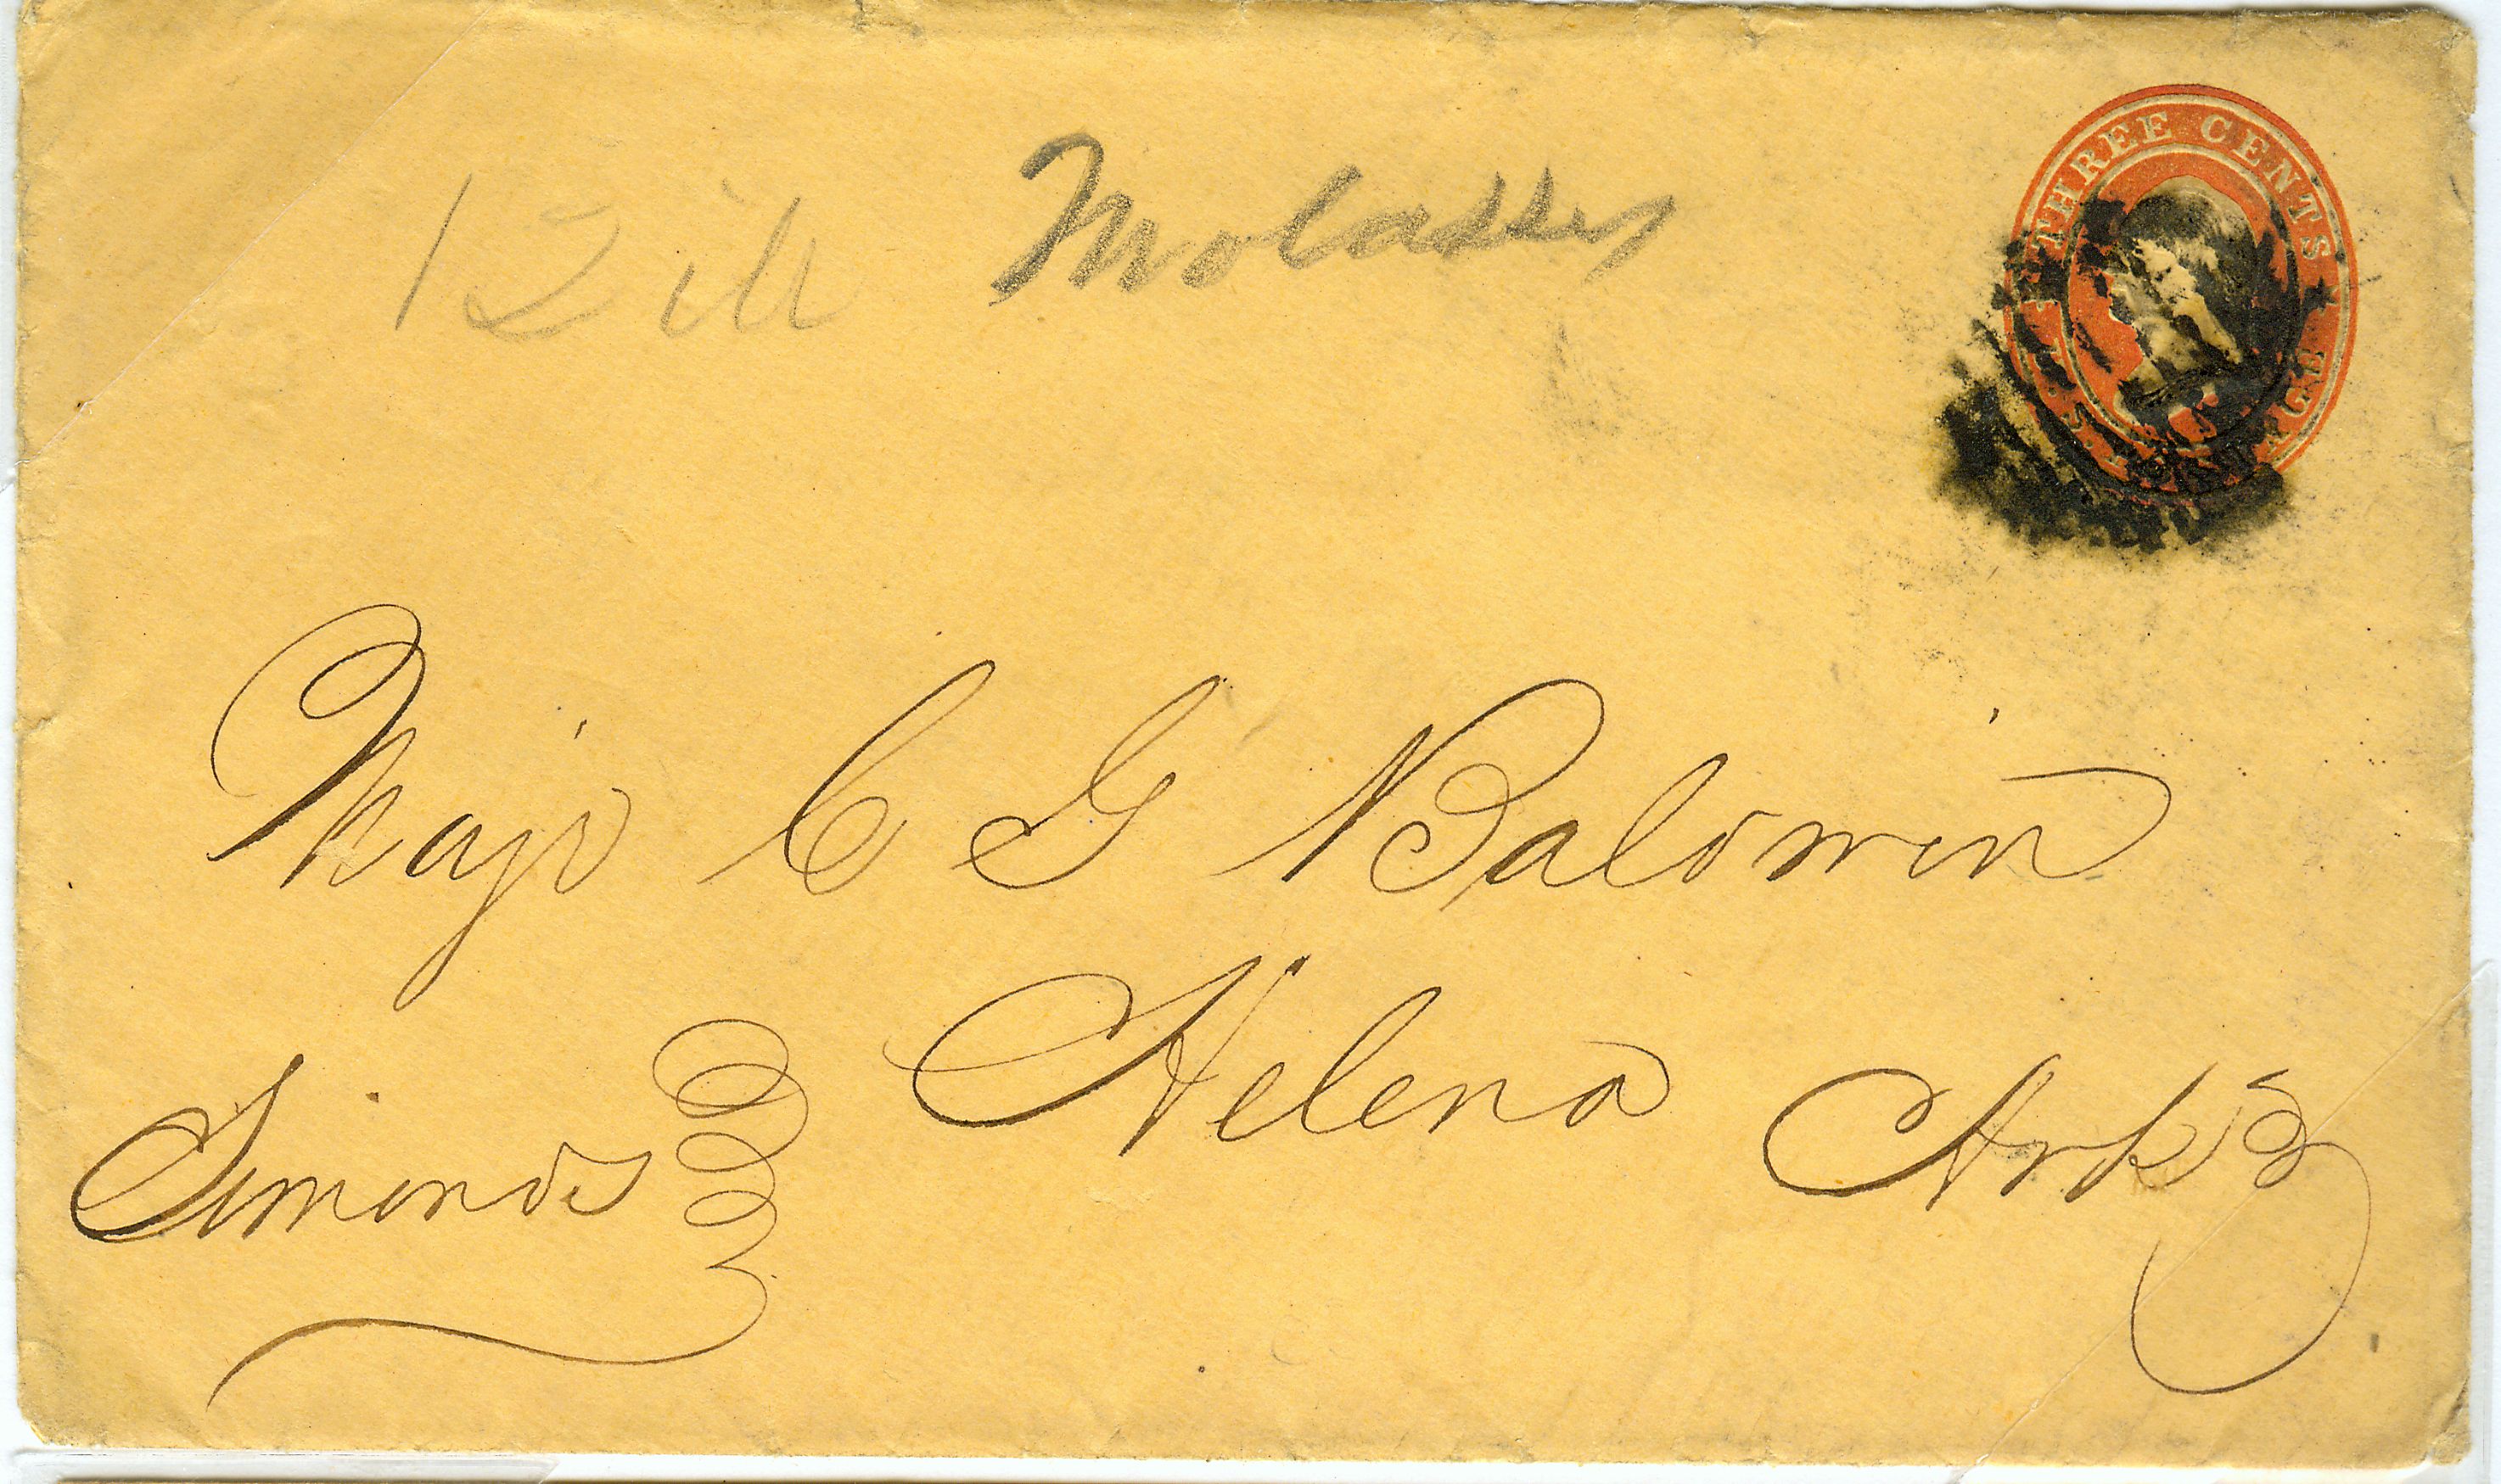 Bill Molasses
THREE CENTS
U.S. POSTAGE
Majr C G Baldwin
Helena Arks
Simonds